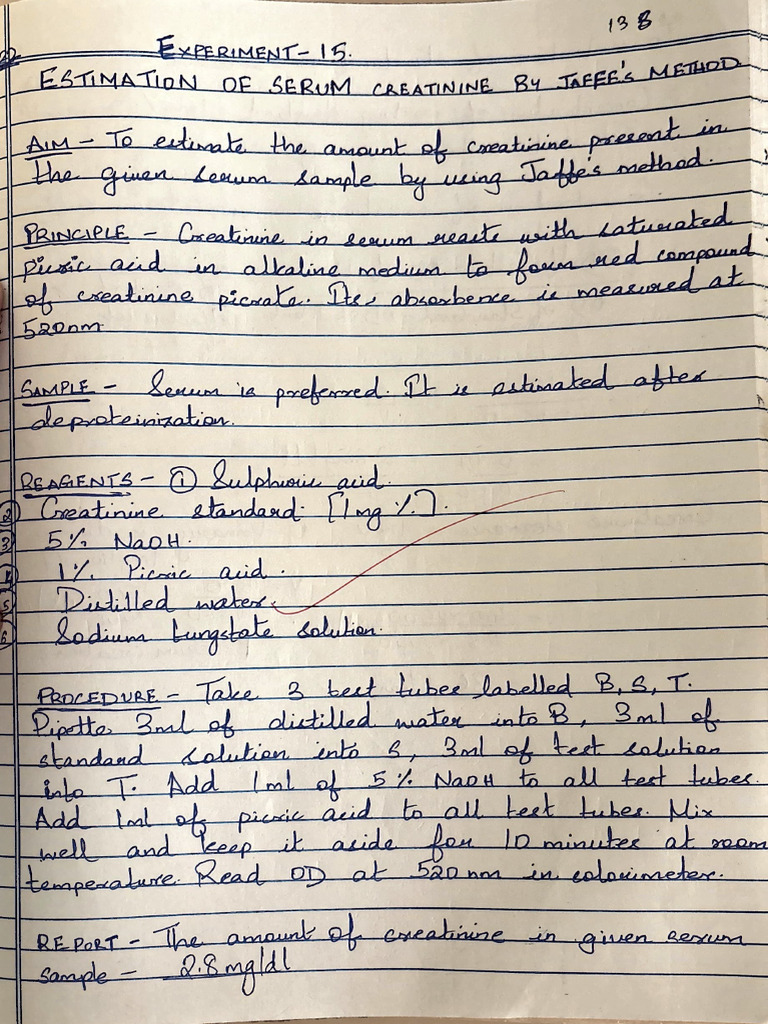 13 8
EXPERIMENT - 15.
ESTIMATION OF SERUM CREATININE BY JAFFE'S METHOD
AIM - To estimate the amount of creatinine present in
the given serum sample by using Jaffe's method.
PRINCIPLE - Creatinine in serum reacts with saturated
Picric acid in alkaline medium to form red compound
of creatinine picrate. Its absorbence is measured at
520nm
SAMPLE - Serum is preferred. It is estimated after
deproteinization.
REAGENTS - ① Sulphuric acid.
② Creatinine standard. [1mg %.].
③ 5% NaOH.
④ 1% Picric acid.
⑤ Distilled water.
⑥ Sodium tungstate solution.
PROCEDURE - Take 3 test tubes labelled B, S, T.
Pipette 3ml of distilled water into B, 3ml of
standard solution into S, 3ml of test solution
into T. Add 1ml of 5% NaOH to all test tubes.
Add 1ml of picric acid to all test tubes. Mix
well and keep it aside for 10 minutes at room
temperature. Read OD at 520nm in colorimeter.
REPORT - The amount of creatinine in given serum
sample - 2.8mg/dl